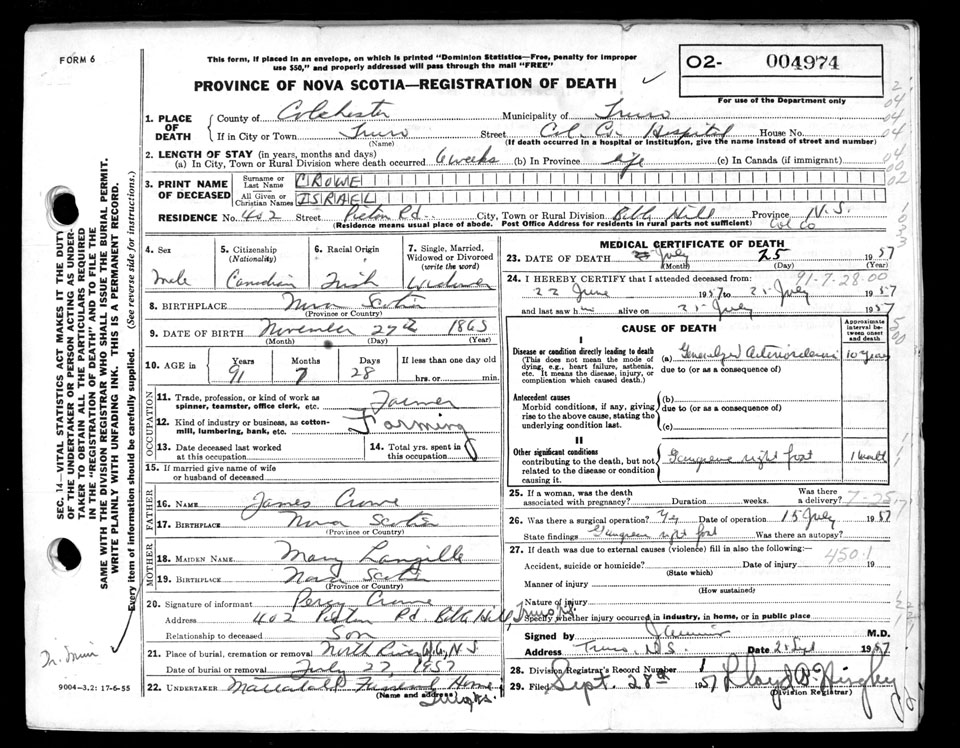 FORM 6
This form, if placed in an envelope, on which is printed "Dominion Statistics—Free, penalty for improper
use $50," and properly addressed will pass through the mail "FREE"
PROVINCE OF NOVA SCOTIA—REGISTRATION OF DEATH
02- 004974
For use of the Department only
SEC. 14—VITAL STATISTICS ACT MAKES IT THE DUTY
OF THE UNDERTAKER OR PERSON ACTING AS UNDER-
TAKER TO OBTAIN ALL THE PARTICULARS REQUIRED
IN THE "REGISTRATION OF DEATH" AND TO FILE THE
SAME WITH THE DIVISION REGISTRAR WHO SHALL ISSUE THE BURIAL PERMIT.
WRITE PLAINLY WITH UNFADING INK. THIS IS A PERMANENT RECORD.
Every item of information should be carefully supplied. (See reverse side for instructions.)
1. PLACE OF DEATH
County of Colchester Municipality of Truro
If in City or Town Truro Street Col. Co. Hospital House No.
(Name) (If death occurred in a hospital or institution, give the name instead of street and number)
2. LENGTH OF STAY (in years, months and days)
(a) In City, Town or Rural Division where death occurred 6 weeks (b) In Province life (c) In Canada (if immigrant)
3. PRINT NAME OF DECEASED
Surname or Last Name CROWE
All Given or Christian Names ISRAEL
RESIDENCE No. 402 Street Pictou Rd. City, Town or Rural Division Bible Hill Province N.S.
(Residence means usual place of abode. Post Office Address for residents in rural parts not sufficient) Col Co
4. Sex
Male
5. Citizenship (Nationality)
Canadian
6. Racial Origin
Irish
7. Single, Married, Widowed or Divorced (write the word)
Widower
8. BIRTHPLACE Nova Scotia
(Province or Country)
9. DATE OF BIRTH November 27th 1865
(Month) (Day) (Year)
10. AGE in Years 91 Months 7 Days 28 If less than one day old
hrs. or min.
OCCUPATION
11. Trade, profession, or kind of work as
spinner, teamster, office clerk, etc. Farmer
12. Kind of industry or business, as cotton-
mill, lumbering, bank, etc. Farming
13. Date deceased last worked
at this occupation
14. Total yrs. spent in
this occupation
15. If married give name of wife
or husband of deceased
FATHER
16. NAME James Crowe
17. BIRTHPLACE Nova Scotia
(Province or Country)
MOTHER
18. MAIDEN NAME Mary Langille
19. BIRTHPLACE Nova Scotia
(Province or Country)
20. Signature of informant Percy Crowe
Address 402 Pictou Rd. Bible Hill, Truro N.S.
Relationship to deceased Son
21. Place of burial, cremation or removal North River, N.S.
Date of burial or removal July 27, 1957
22. UNDERTAKER Funeral Home
(Name and address)
9004-3,2: 17-6-55
MEDICAL CERTIFICATE OF DEATH
23. DATE OF DEATH July 25 1957
(Month) (Day) (Year)
24. I HEREBY CERTIFY that I attended deceased from:
91-7-28-00
22 June 1957 to 25 July 1957
and last saw him alive on 25 July 1957
CAUSE OF DEATH
Approximate interval between onset and death
I
Disease or condition directly leading to death
(This does not mean the mode of
dying, e.g., heart failure, asthenia,
etc. It means the disease, injury, or
complication which caused death.)
(a) Generalized Arteriosclerosis 10 years
due to (or as a consequence of)
Antecedent causes
Morbid conditions, if any, giving
rise to the above cause, stating the
underlying condition last.
(b)
due to (or as a consequence of)
(c)
II
Other significant conditions
contributing to the death, but not
related to the disease or condition
causing it.
Gangrene right foot 1 month
25. If a woman, was the death
associated with pregnancy? Duration weeks. Was there
a delivery?
7-25
26. Was there a surgical operation? Yes Date of operation 15 July 1957
State findings Gangrene right foot Was there an autopsy?
27. If death was due to external causes (violence) fill in also the following:—
450.1
Accident, suicide or homicide? Date of injury 19
(State which)
Manner of injury
(How sustained)
Nature of injury
Specify whether injury occurred in industry, in home, or in public place
Signed by M.D.
Address Truro, N.S. Date 2 Sept 1957
28. Division Registrar's Record Number
29. Filed Sept. 28th 1957
(Division Registrar)